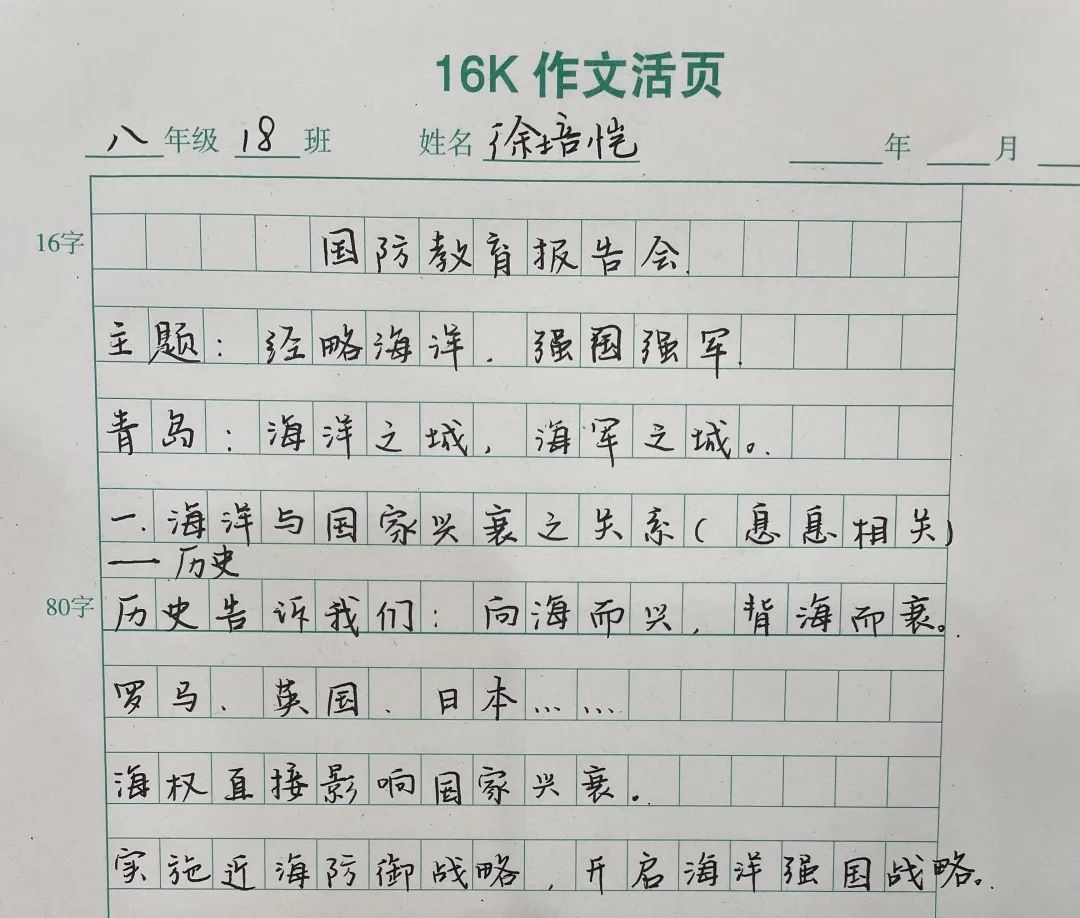 16K 作文活页
八年级 18班 姓名 徐培恺 年 月
16字 国防教育报告会.
主题：经略海洋．强国强军.
青岛：海洋之城，海军之城。
一．海洋与国家兴衰之关系（息息相关）
——历史
80字 历史告诉我们：向海而兴，背海而衰。
罗马、英国、日本……
海权直接影响国家兴衰。
实施近海防御战略，开启海洋强国战略。